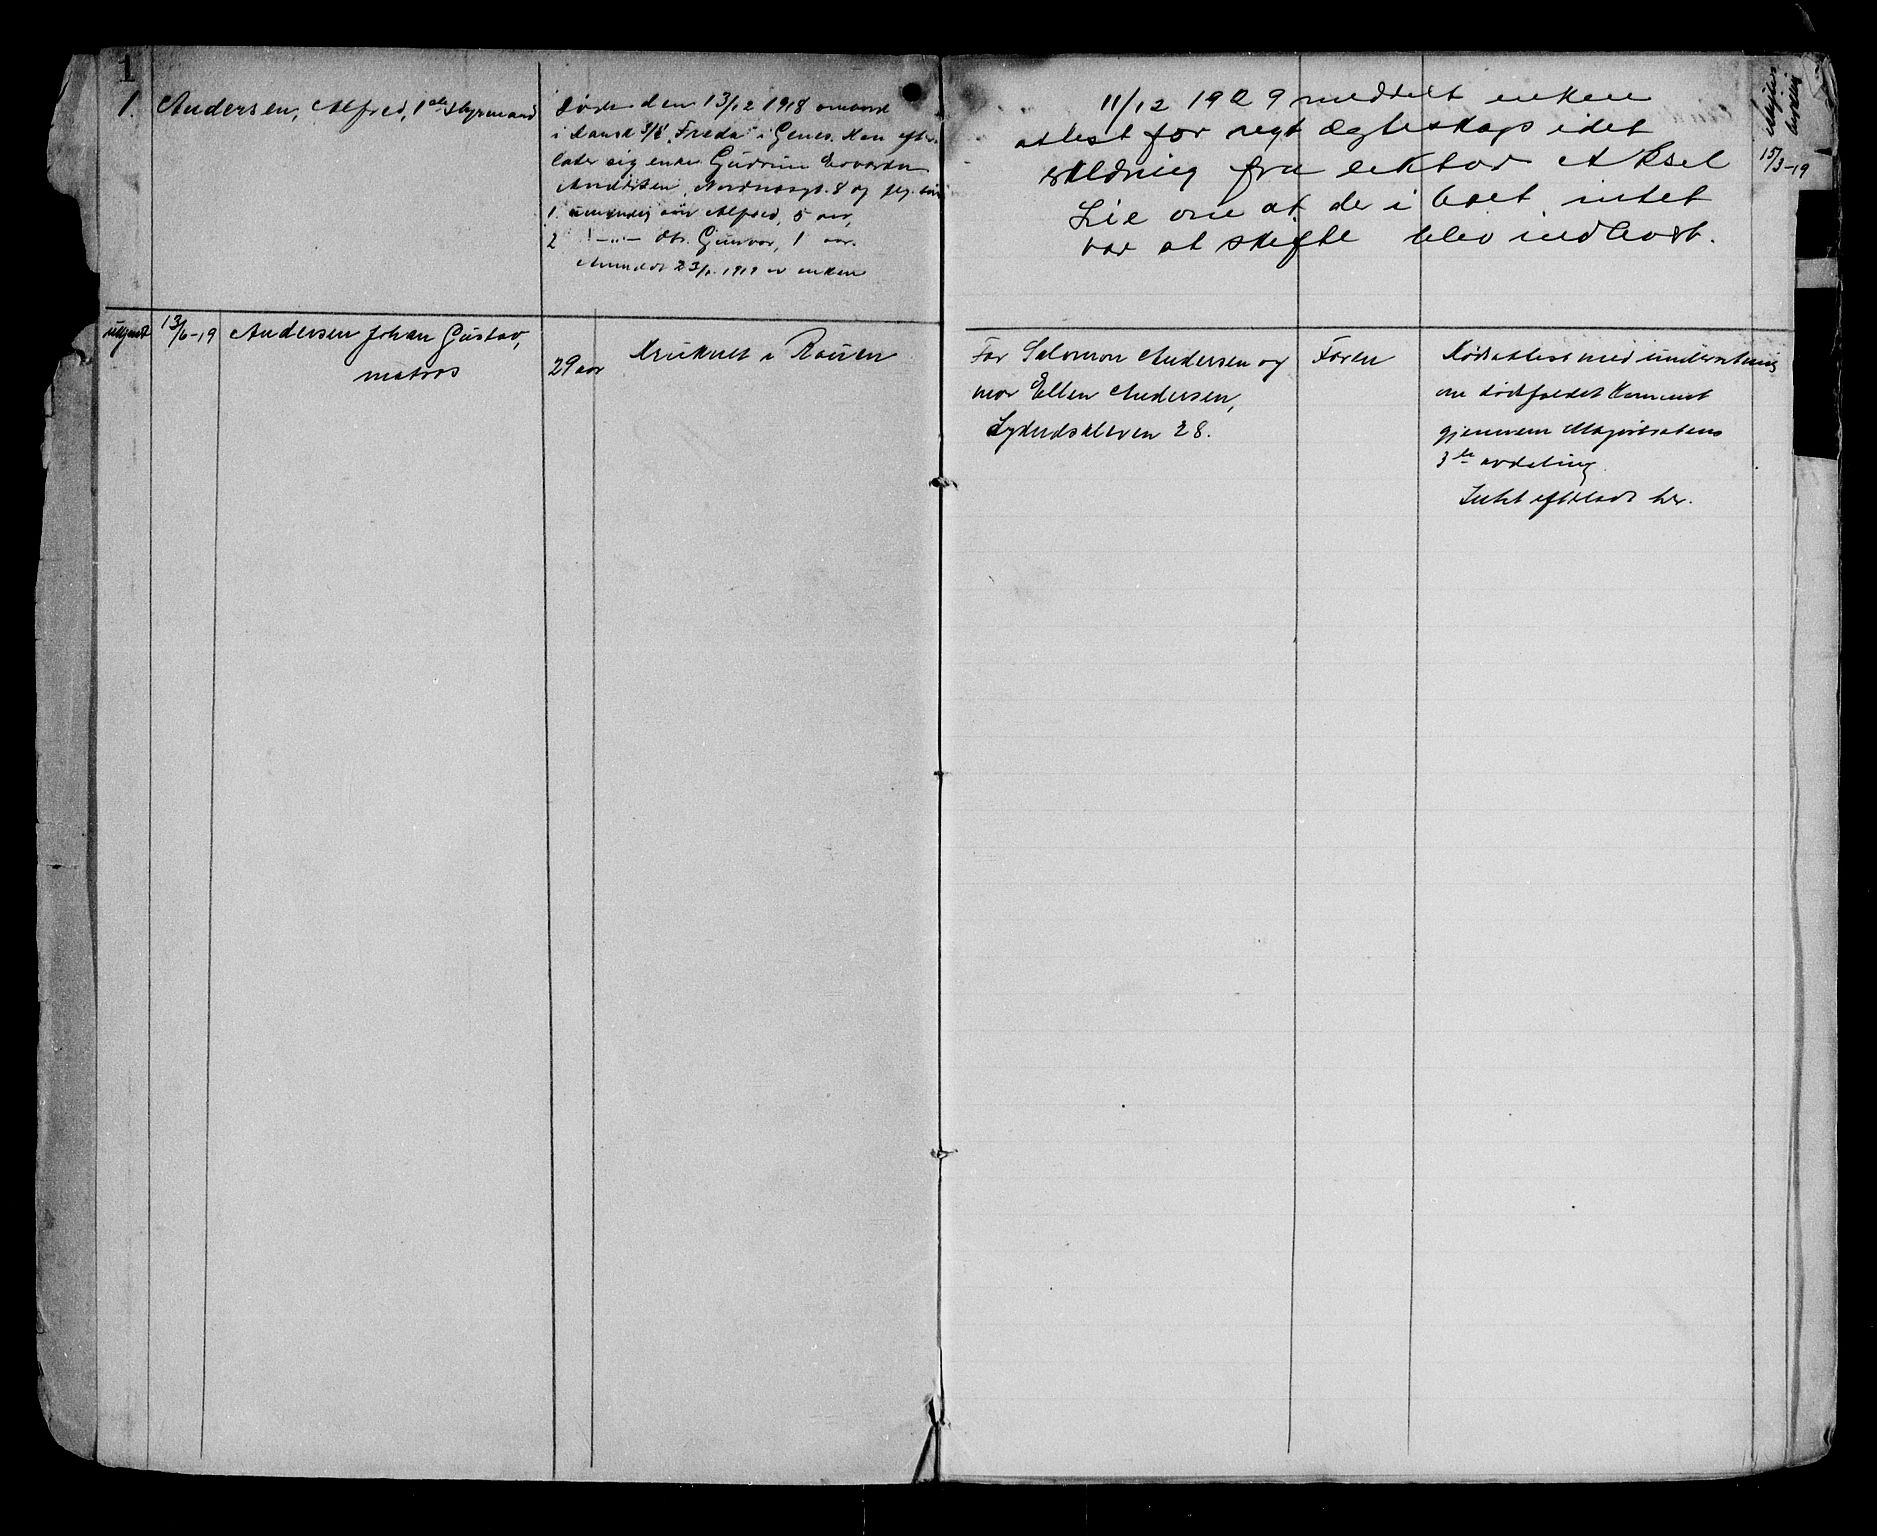 1
1. Andersen, Alfred, 1ste Styrmand
Døde den 13/12 1918 ombord
i dansk S/S "Freda" i Genes. Han efter-
later sig enke Gudrun
Andersen, Nordnesgt. 8 og
1. umyndig søn Alfred, 5 aar,
2 " -"- dtr. Gunvor, 1 aar.
Anmeldt 23/1 1919 av enken
11/12 1929 meddelt enken
attest for nyt ægteskap idet
erklæring fra lektor Aksel
Lie om at der i boet intet
var at skifte blev indlevert.
15/3-19
13/6-19 Andersen Johan Gustav,
matros
29 aar
Druknet i Rouen
Far Salomon Andersen og
mor Ellen Andersen,
Lyderdskleven 28.
Faren
Dødsattest med underretning
om dødsfaldet kommet
gjennem Magistratens
3die avdeling.
Intet efterladt her.